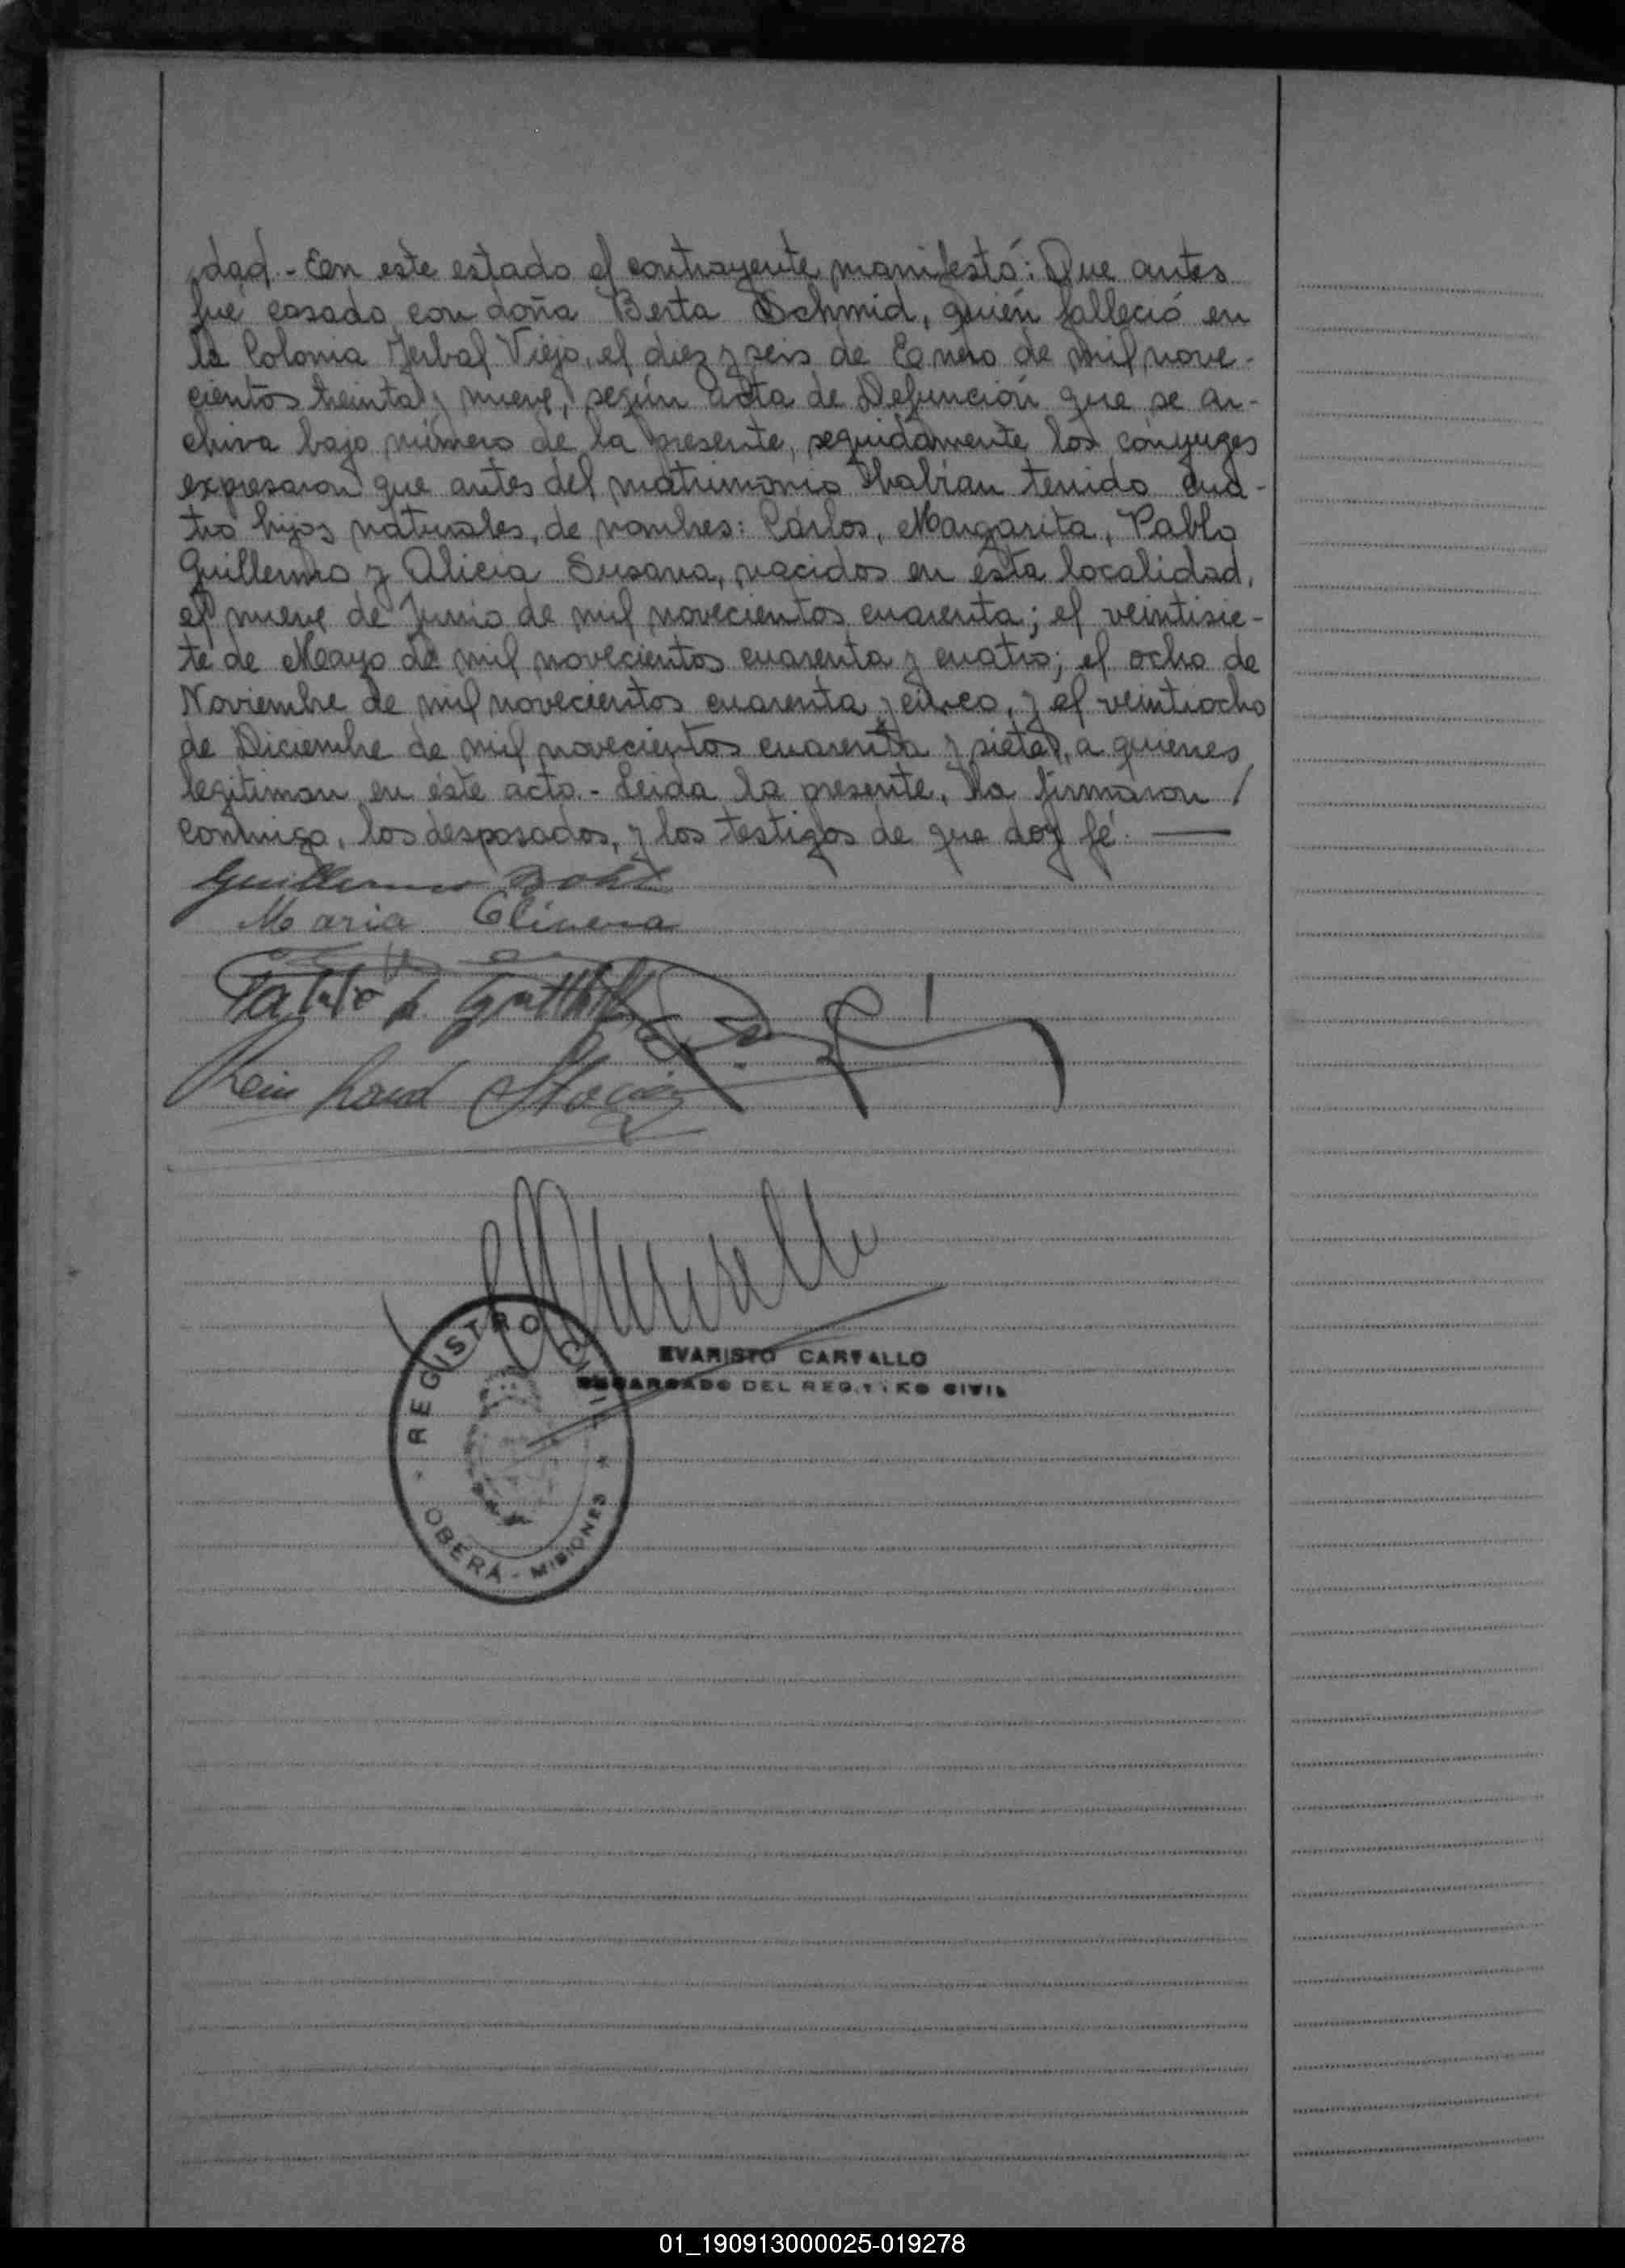 dad.- En este estado el contrayente manifestó: Que antes
fué casado con doña Berta Schmid, quién falleció en
la Colonia Yerbal Viejo, el diez y seis de Enero de mil nove-
cientos treinta y nueve, según acta de Defunción que se ar-
chiva bajo número de la presente, seguidamente los cónyuges
expresaron que antes del matrimonio habían tenido cua-
tro hijos naturales, de nombres: Cárlos, Margarita, Pablo
Guillermo y Alicia Susana, nacidos en ésta localidad,
el nueve de Junio de mil novecientos cuarenta; el veintisie-
te de Mayo de mil novecientos cuarenta y cuatro; el ocho de
Noviembre de mil novecientos cuarenta y cinco, y el veintiocho
de Diciembre de mil novecientos cuarenta y siete, a quienes
legitiman en éste acto.- Leida la presente, la firmaron /
conmigo, los desposados, y los testigos de que doy fé. —
Guillermo
Maria
Pablo
Reinhard
EVARISTO CARVALLO
ENCARGADO DEL REGISTRO CIVIL
REGISTRO CIVIL
OBERÁ - MISIONES
01_190913000025-019278